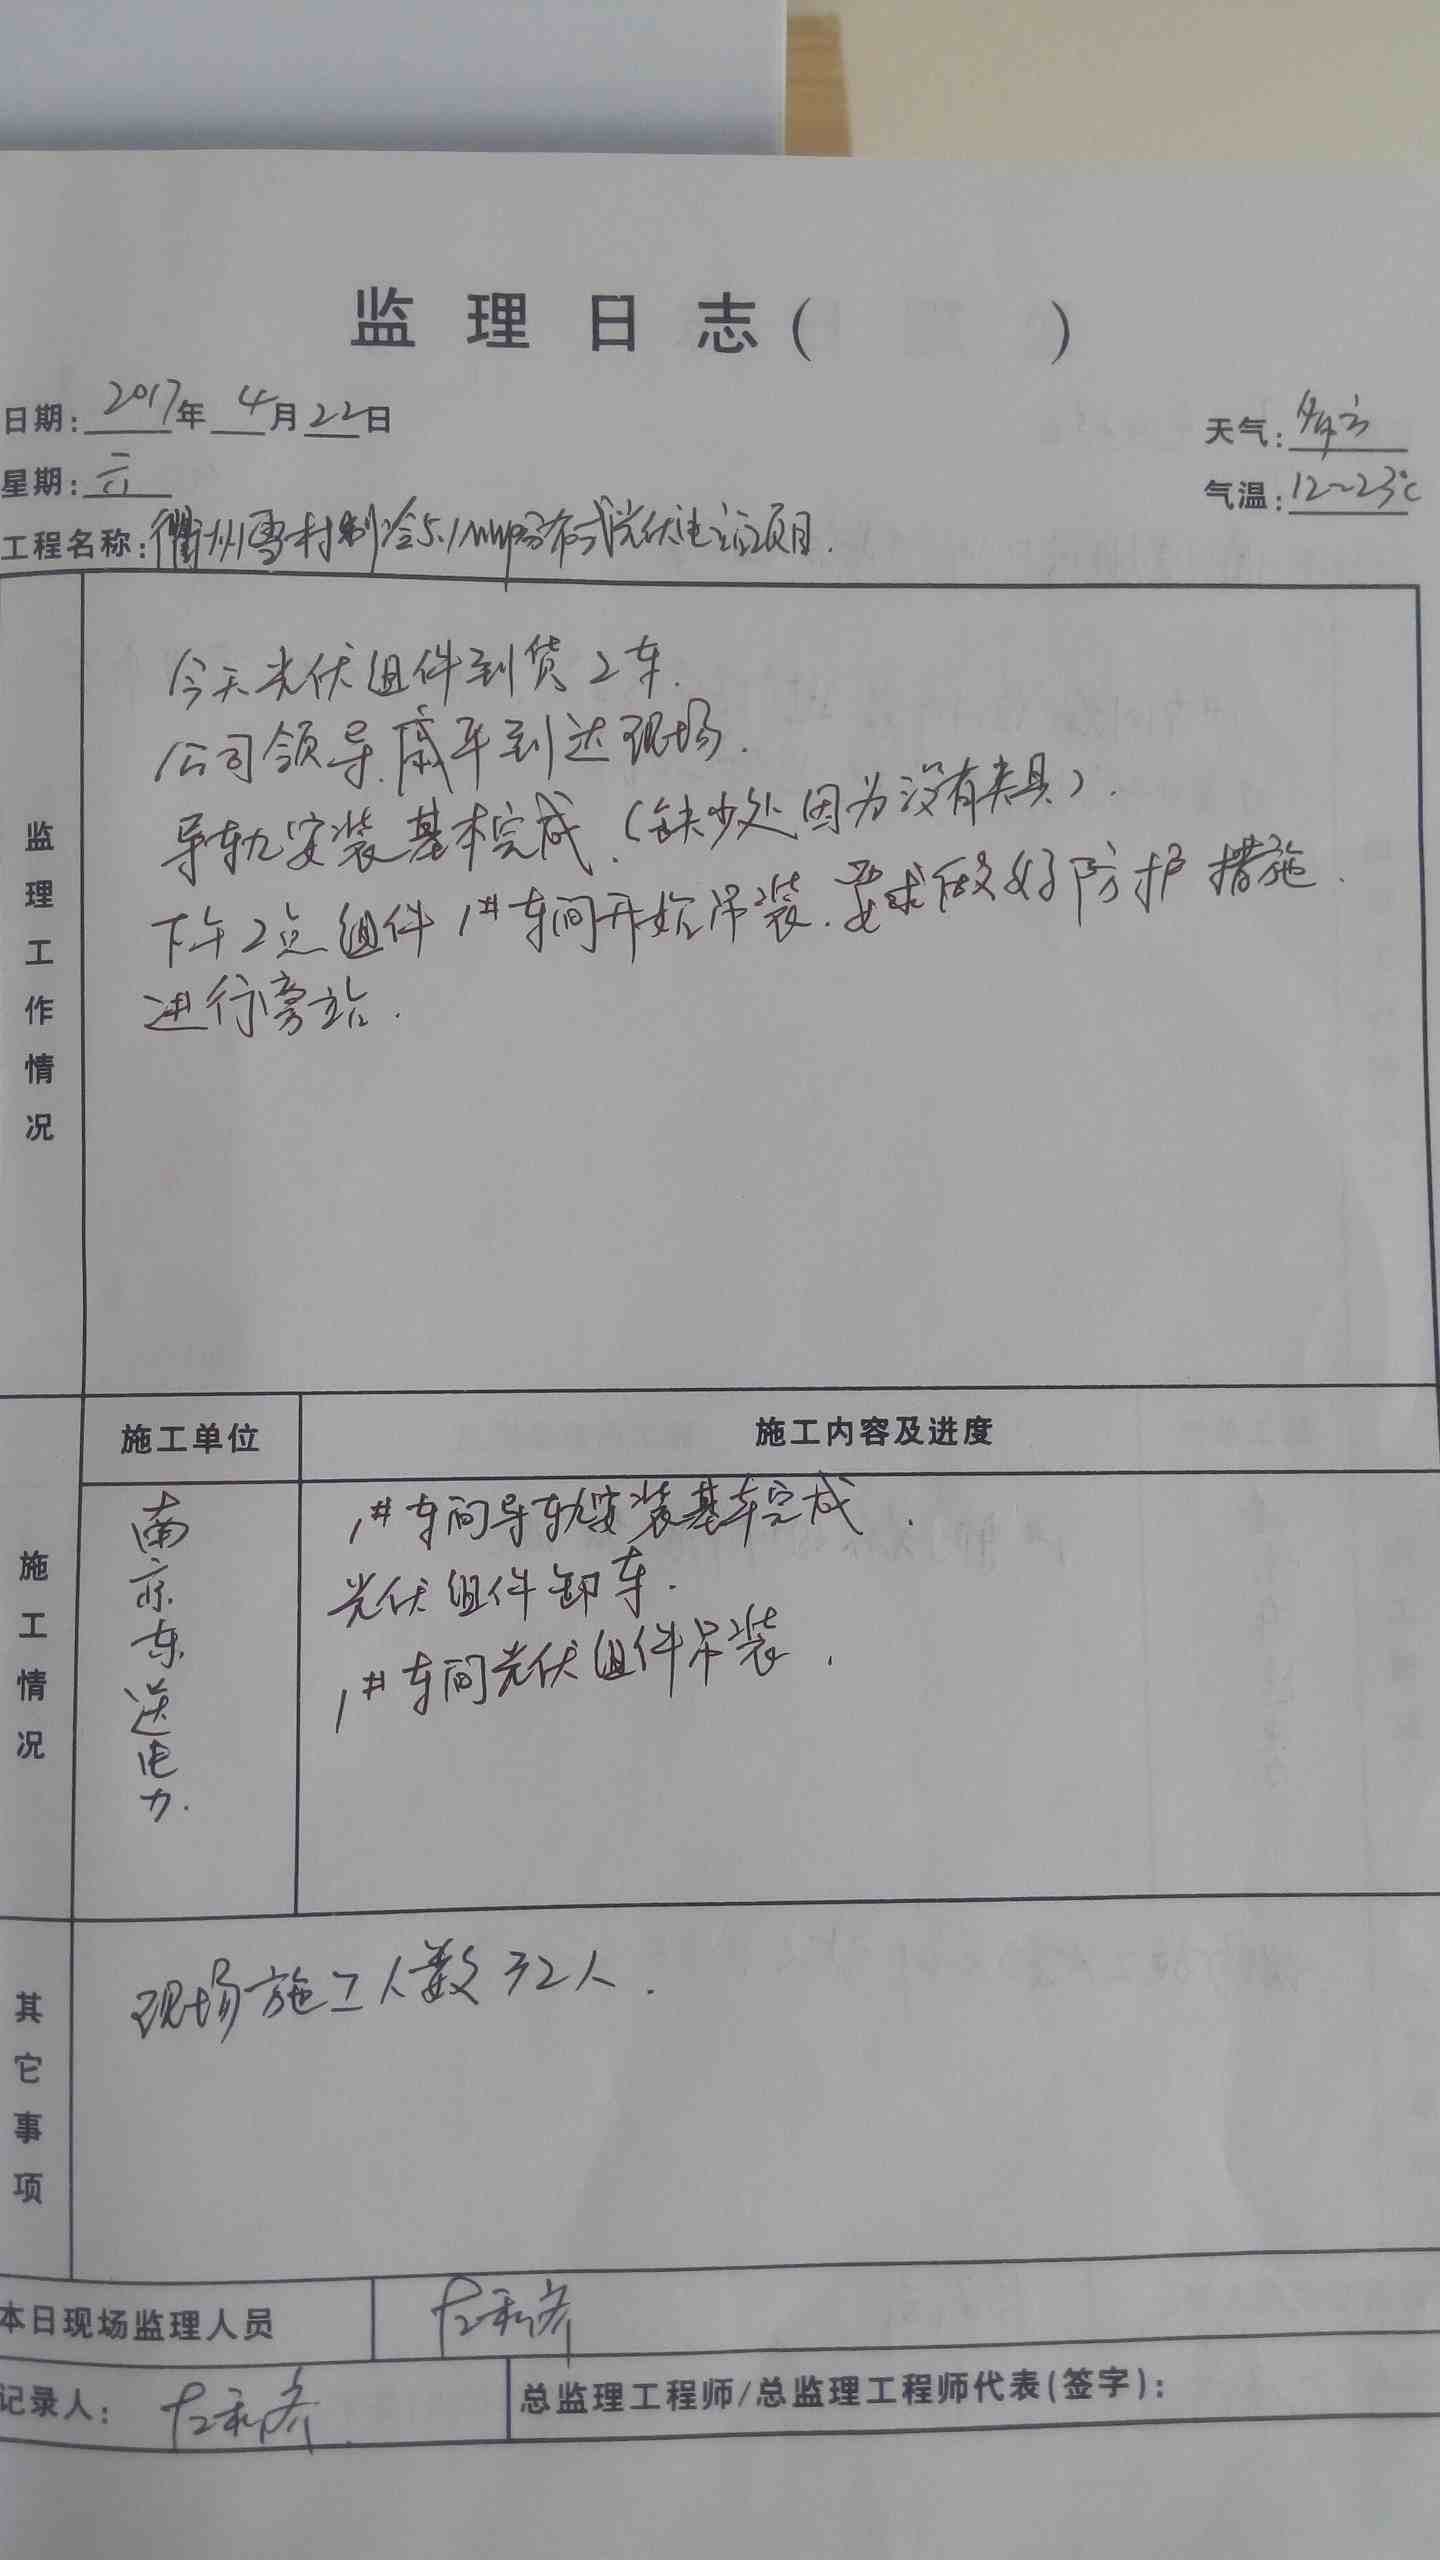 监理日志( )
日期: 2017年 4月 22日
天气: 多云
星期: 六
气温: 12~23℃
工程名称: 衢州雪村制冷5.1MWp分布式光伏电站项目.
监理工作情况
今天光伏组件到货2车.
公司领导 到达现场.
导轨安装基本完成.(缺少处因为没有夹具).
下午2点组件1#车间开始吊装.要求做好防护措施.
进行旁站.
施工情况
施工单位
施工内容及进度
南京东送电力.
1#车间导轨安装基本完成.
光伏组件卸车.
1#车间光伏组件吊装.
其它事项
现场施工人数32人.
本日现场监理人员
记录人:
总监理工程师/总监理工程师代表(签字):